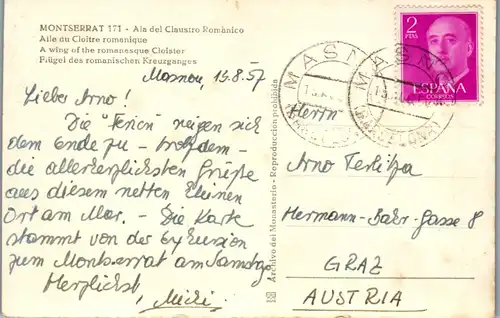 MONTSERRAT 171 - Ala del Claustro Románico
Aile du Cloître romanique
A wing of the romanesque Cloister
Flügel des romanischen Kreuzganges
Masnou, 15.8.57
Lieber Arno!
Die "Ferien" neigen sich
dem Ende zu - trotzdem -
die allerherzlichsten Grüße
aus diesem netten kleinen
Ort am Mar. - Die Karte
stammt von der Exkursion
zum Montserrat am Samstag.
Herzlichst,
Micki
Archivo del Monasterio - Reproducción prohibida
MASNOU
MASNOU
(BARCELONA)
2
PTAS
ESPAÑA
CORREOS
Herrn
Arno Terlitza
Hermann-Bahr-Gasse 8
GRAZ
AUSTRIA